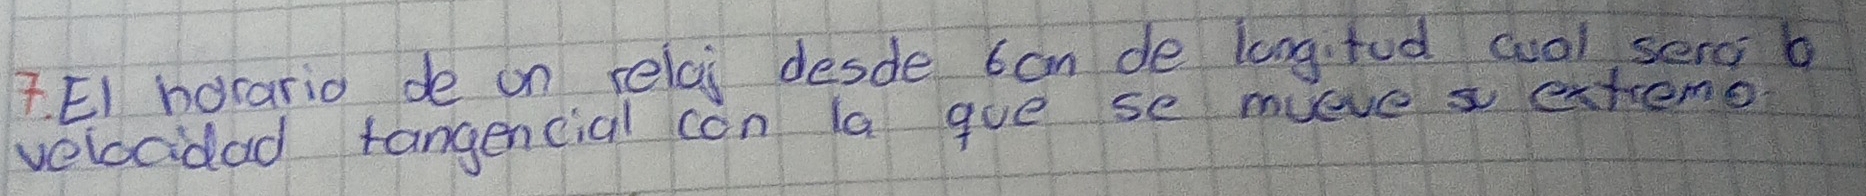 7. El horario de un reloj desde 6cm de longitud cual será la
velocidad tangencial con la que se mueve su extremo.